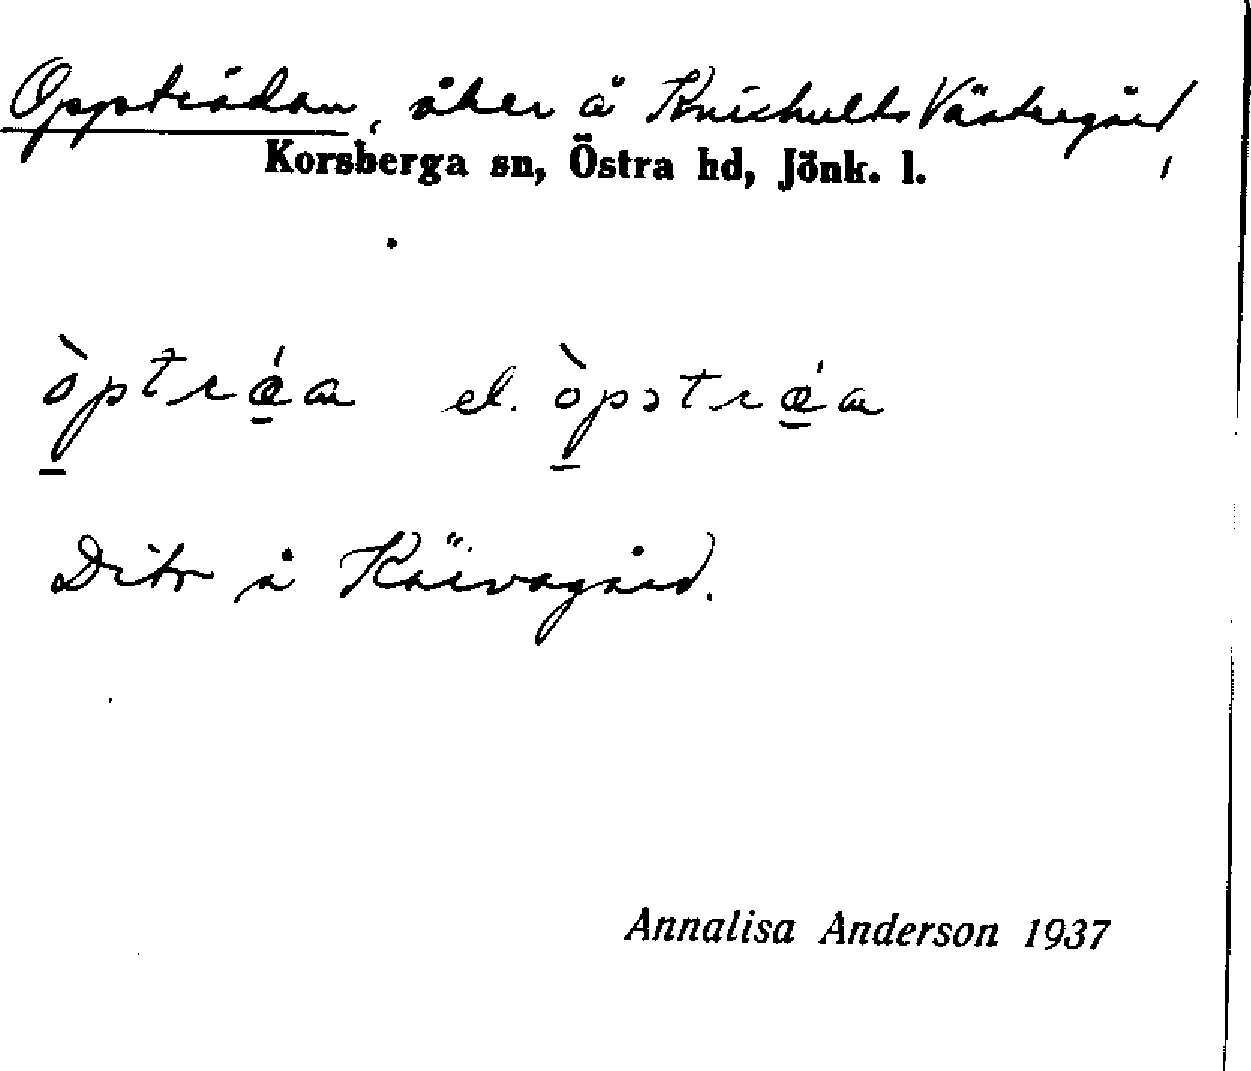 Oppträdan, åker å Knishults Västregård,
Korsberga sn, Östra hd, Jönk. l.
òptrǽa el. òpstrǽa
Dito å Kärvagård.
Annalisa Anderson 1937